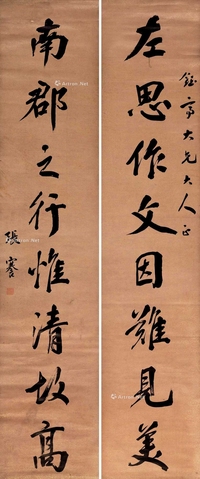 鈺亭大兄大人正
左思作文因難見美
南郡之行惟清故高
張謇